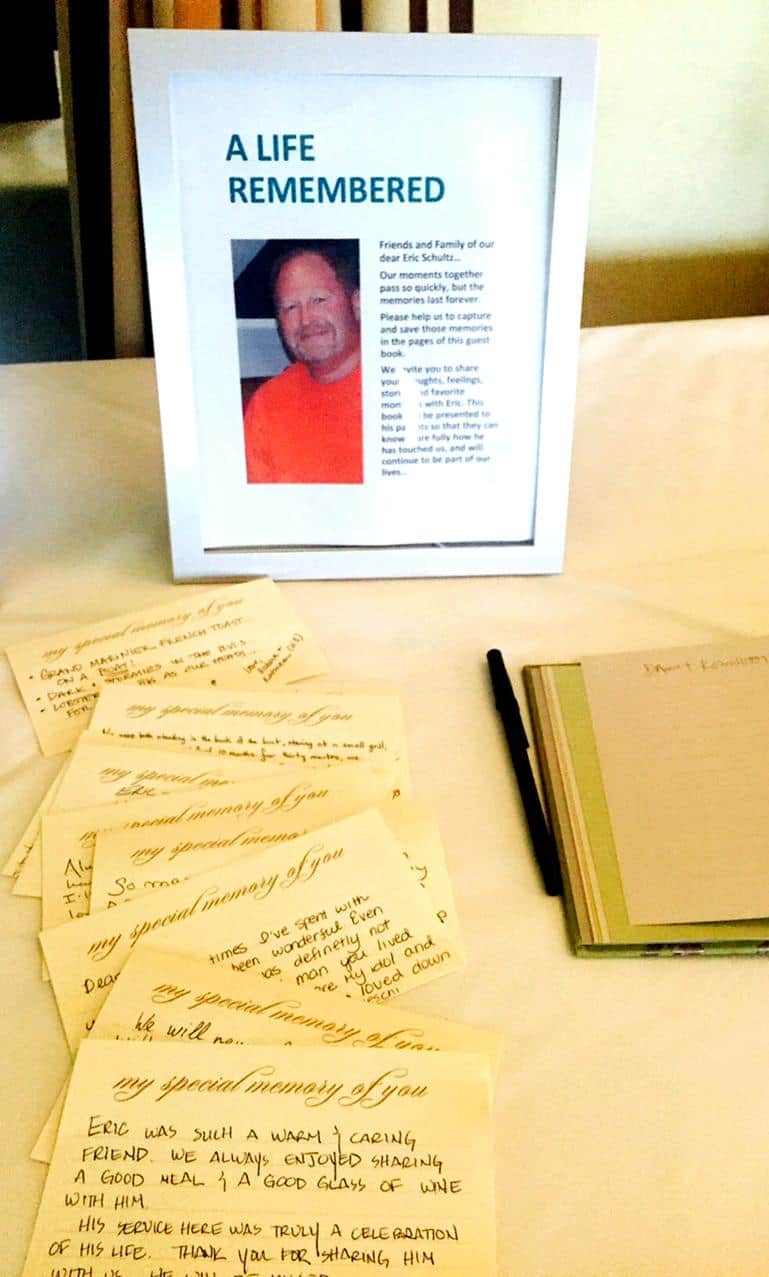 A LIFE
REMEMBERED
Friends and Family of our
dear Eric Schultz...
Our moments together
pass so quickly, but the
memories last forever.
Please help us to capture
and save those memories
in the pages of this guest
book.
We vite you to share
your ughts, feelings,
stori d favorite
mom with Eric. This
book l be presented to
his pa ts so that they can
know re fully how he
has touched us, and will
continue to be part of our
lives...
my special memory of you
• GRAND MARINIER FRENCH TOAST
ON A BOAT!
• DARK & STORMIES IN THE BVI'S
BIG AS OUR HEADS...
• LOBSTER
FOR
my special memory of you
We were both standing in the back of the boat, staring at a small grill,
my special me
ERIC
special memory of you
my special memo
So ma
my special memory of you
Dear
times I've spent with
been wonderful. Even
as definetly not
man you lived
re my idol and
loved down
my special memory of you
We will
my special memory of you
ERIC WAS SUCH A WARM & CARING
FRIEND. WE ALWAYS ENJOYED SHARING
A GOOD MEAL & A GOOD GLASS OF WINE
WITH HIM.
HIS SERVICE HERE WAS TRULY A CELEBRATION
OF HIS LIFE. THANK YOU FOR SHARING HIM
WITH US. HE WILL BE MISSED